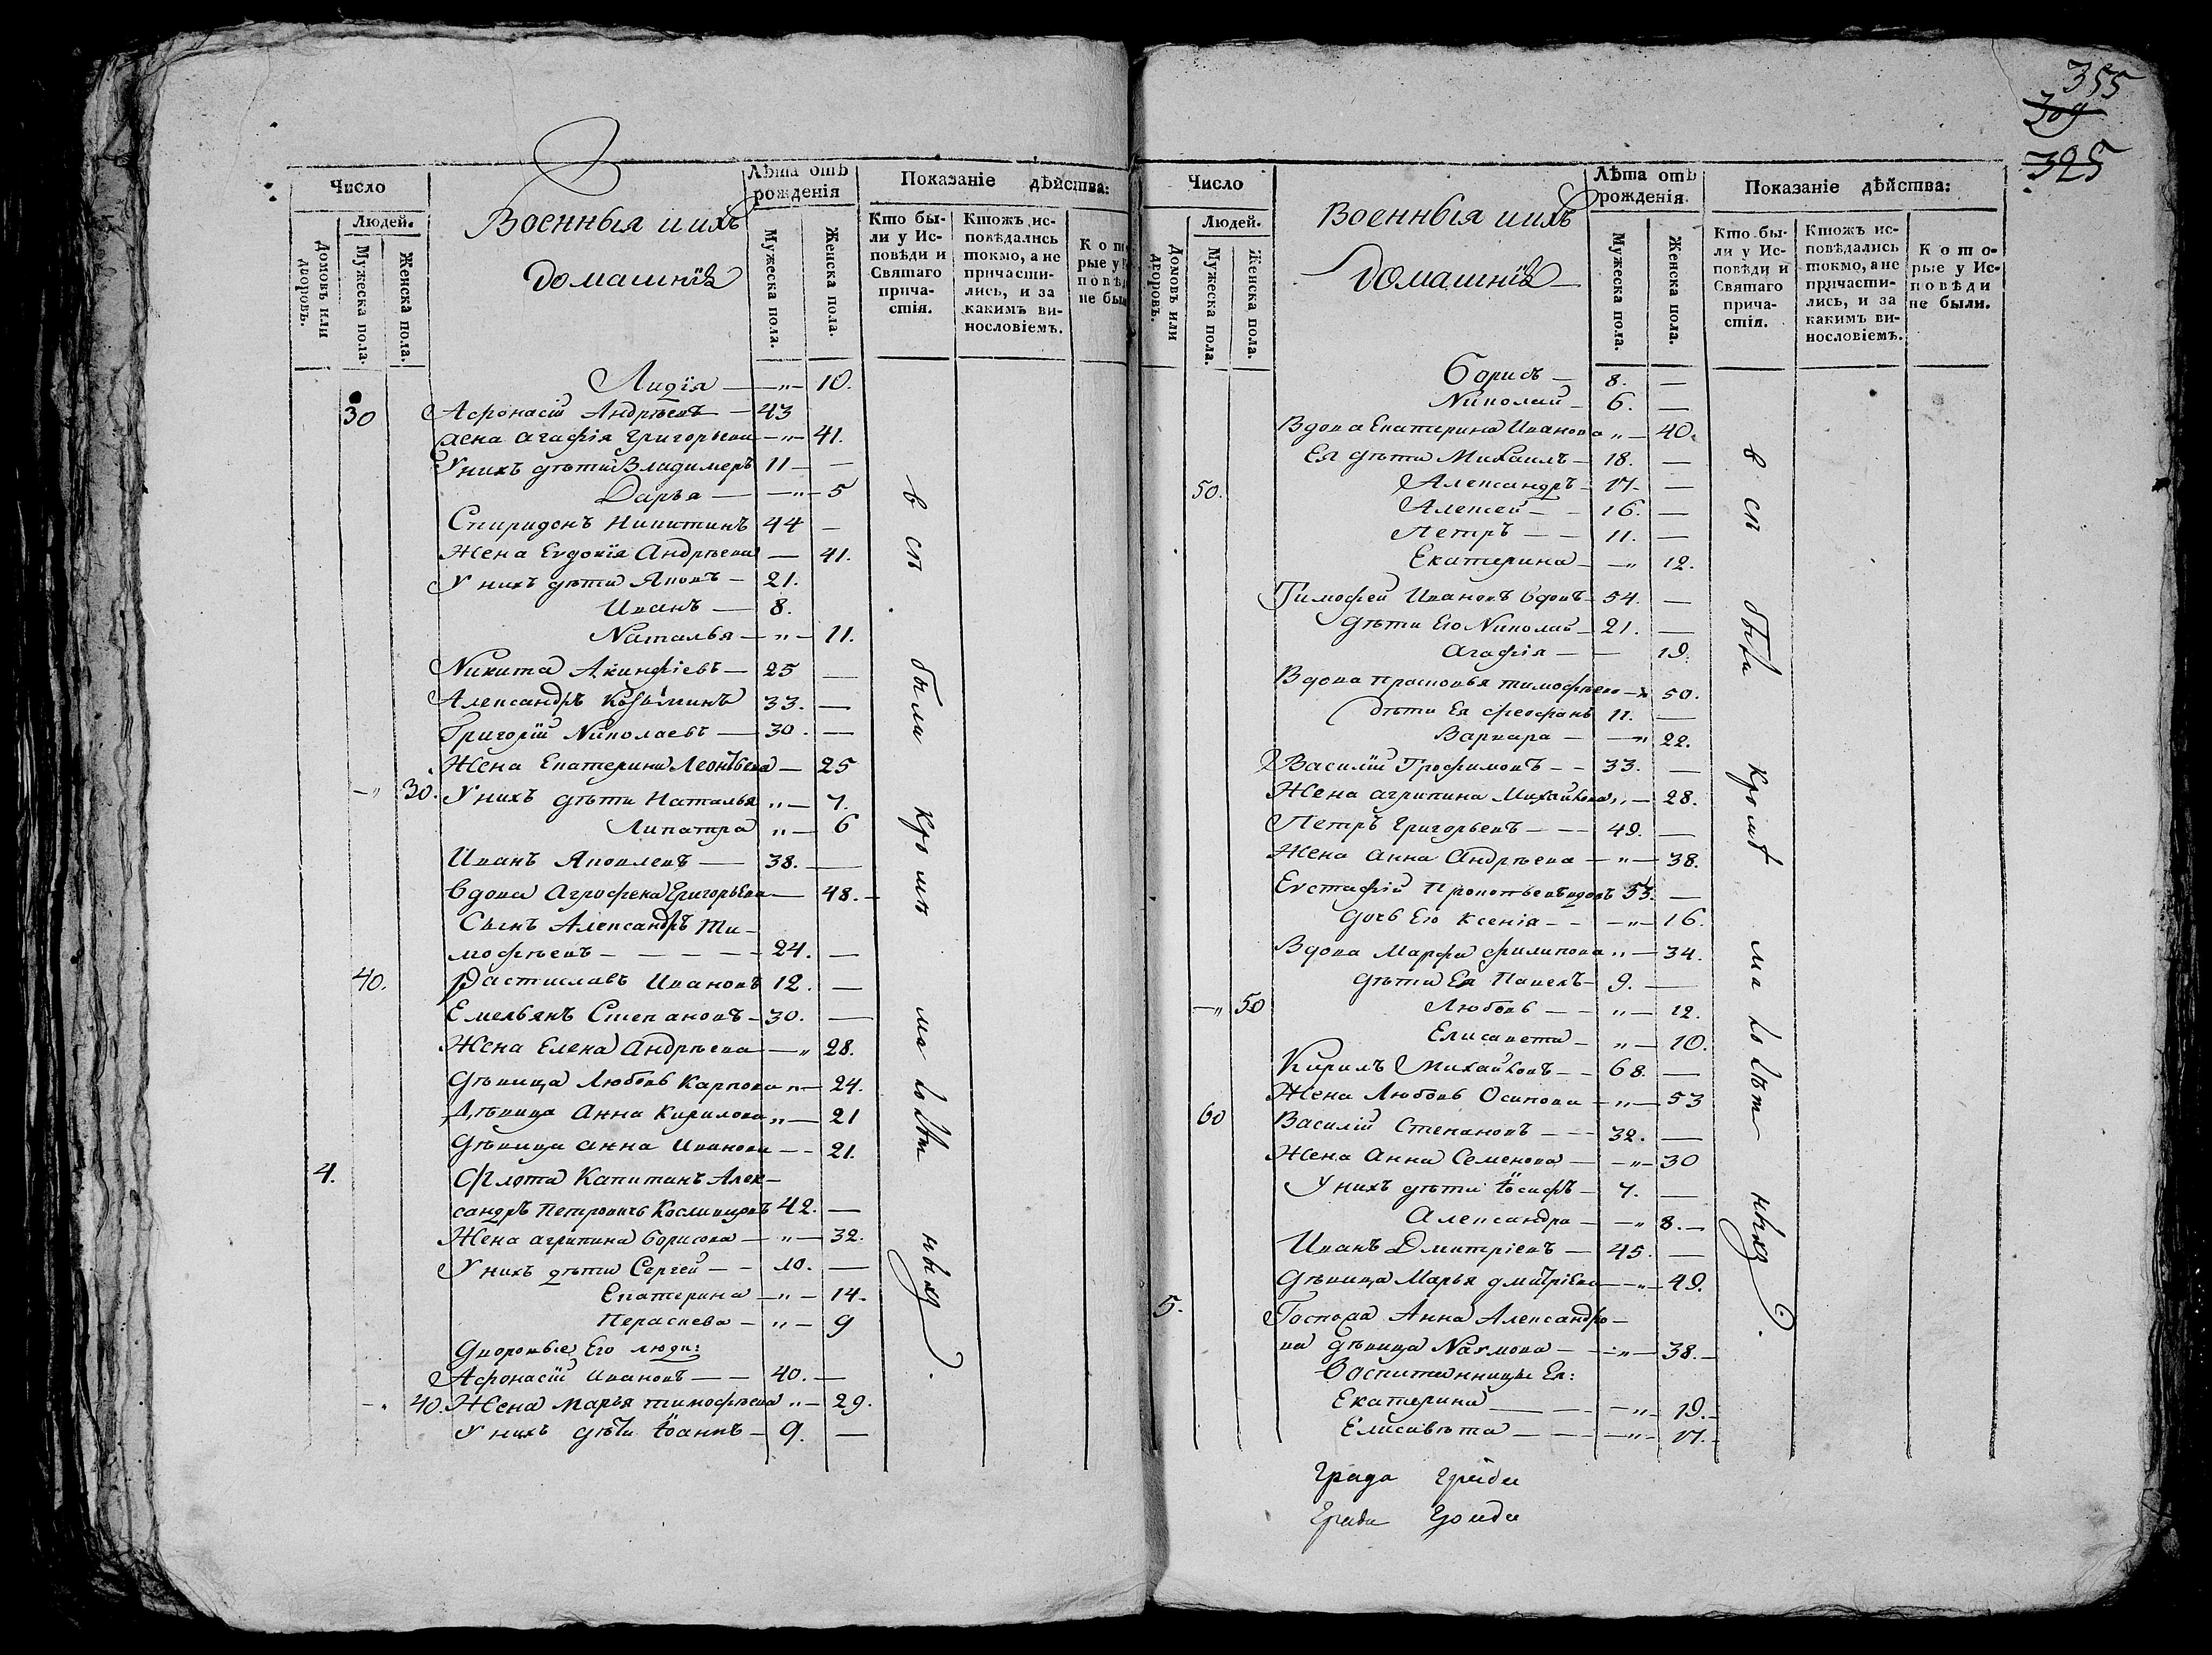 355
309
325
Число
Людей.
Домовъ или дворовъ.
Мужеска пола.
Женска пола.
Военныя и ихъ
домашнія
Лѣта отъ рожденія
Мужеска пола.
Женска пола.
Показаніе дѣйства:
Кто бы-
ли у Ис-
повѣди и
Святаго
прича-
стія.
Ктожъ ис-
повѣдались
токмо, а не
причасти-
лись, и за
какимъ ви-
нословіемъ.
Лидія — „ — 10.
30 Афонасій Андрѣевъ — 43
жена Агафія Григорьева — „ — 41.
У нихъ дѣти Владимеръ 11 — —
Дарья — „ — 5
Спиридонъ Никитинъ 44 —
Жена Евдокія Андрѣева — 41.
У нихъ дѣти Яковъ — 21.
Иванъ — 8.
Наталья — „ — 11.
Никита Акинфіевъ — 25 —
Александръ Козьминъ 33. —
Григорій Николаевъ — 30. —
Жена Екатерина Леонтьева — 25
— „ 30. У нихъ дѣти Наталья „ — 7.
Липатра „ — 6
Иванъ Яковлевъ — 38. —
Вдова Агрофена Григорьева — 48. —
Сынъ Александръ Ти-
мофѣевъ — — — — 24. —
40. Растиславъ Ивановъ 12. —
Емельянъ Степановъ — 30. —
Жена Елена Андрѣева — „ 28.
Дѣвица Любовь Карпова „ — 24.
Дѣвица Анна Кирилова „ — 21
Дѣвица Анна Иванова — — 21.
4. Флота Капитанъ Алек-
сандръ Петровичъ 42. —
Жена Агрипина Борисова — „ — 32.
У нихъ дѣти Сергей — — 10. —
Екатерина — „ — 14.
Пераскева — „ — 9
Дворовые Его люди:
Афонасій Ивановъ — — 40. —
— „ 40. Жена Марья Тимофѣева „ — 29.
У нихъ дѣти Іоаннъ — 9. —
всѣ были кромѣ малолѣтныхъ.
Число
Людей.
Домовъ или дворовъ.
Мужеска пола.
Женска пола.
Военныя и ихъ
домашнія
Лѣта отъ рожденія.
Мужеска пола.
Женска пола.
Показаніе дѣйства:
Кто бы-
ли у Ис-
повѣди и
Святаго
прича-
стія.
Ктожъ ис-
повѣдались
токмо, а не
причасти-
лись, и за
какимъ ви-
нословіемъ.
Кото-
рые у Ис-
повѣди
не были.
Борисъ — 8. —
Николай — 6. —
Вдова Екатерина Иванова „ — 40.
Ея дѣти Михаилъ — 18. —
50. Александръ — 17. —
Алексей — — 16. —
Петръ — — 11. —
Екатерина — „ 12.
Тимофей Ивановъ вдовъ — 54. —
Дѣти Его Николай — 21. —
Агафія — — 19.
Вдова Прасковья Тимофѣева — 50.
Дѣти Ея Феофанъ 11. —
Варвара — — „ 22.
Василій Трофимовъ — — 33. —
Жена Агрипина Михайлова „ — 28.
Петръ Григорьевъ — — 49. —
Жена Анна Андрѣева — „ — 38.
Евстафій Прокопьевъ вдовъ 53. —
Дочь Его Ксенія — — „ — 16.
Вдова Марфа Филипова „ — 34.
Дѣти Ея Павелъ — 9. —
— „ 50 Любовь — — „ — 12.
Елисавета — „ — 10.
Кирилъ Михайловъ — — 68. —
Жена Любовь Осипова — „ — 53
60 Василій Степановъ — — 32. —
Жена Анна Семенова — — „ — 30
У нихъ дѣти Іосифъ — 7. —
Александра — — „ 8. —
Иванъ Дмитріевъ — 45. —
Дѣвица Марья Дмитріева — „ — 49.
5. Госпожа Анна Александро-
ва дѣвица — — „ — 38. —
Воспитанницы Ея:
Екатерина — — — „ — 19. —
Елисавѣта — — — „ — 17. —
всѣ были кромѣ малолѣтныхъ.
Града Града
Града Града